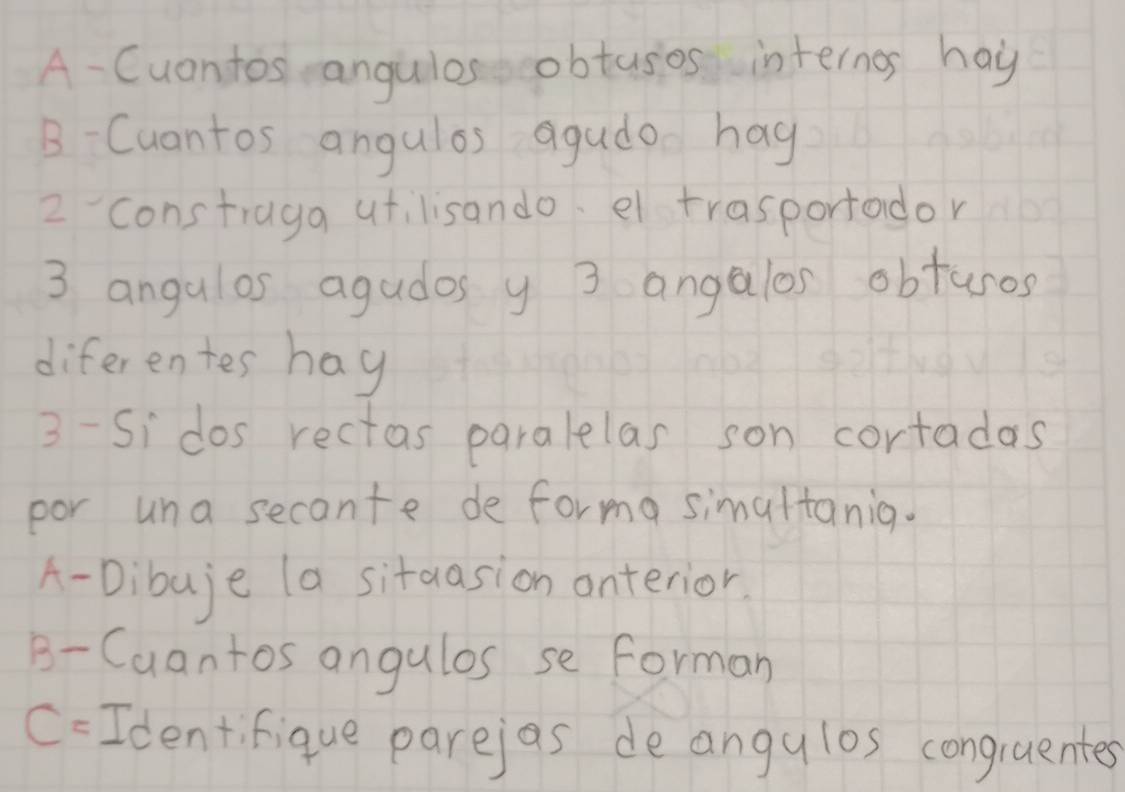 A-Cuantos angulos obtusos internos hay
B-Cuantos angulos agudo hay
2-construya utilisando el trasportador
3 angulos agudos y 3 angulos obtusos
diferentes hay
3-Si dos rectas paralelas son cortadas
por una secante de forma simultania.
A-Dibuje la situasion anterior.
B-Cuantos angulos se forman
C=Identifique parejas de angulos congruentes